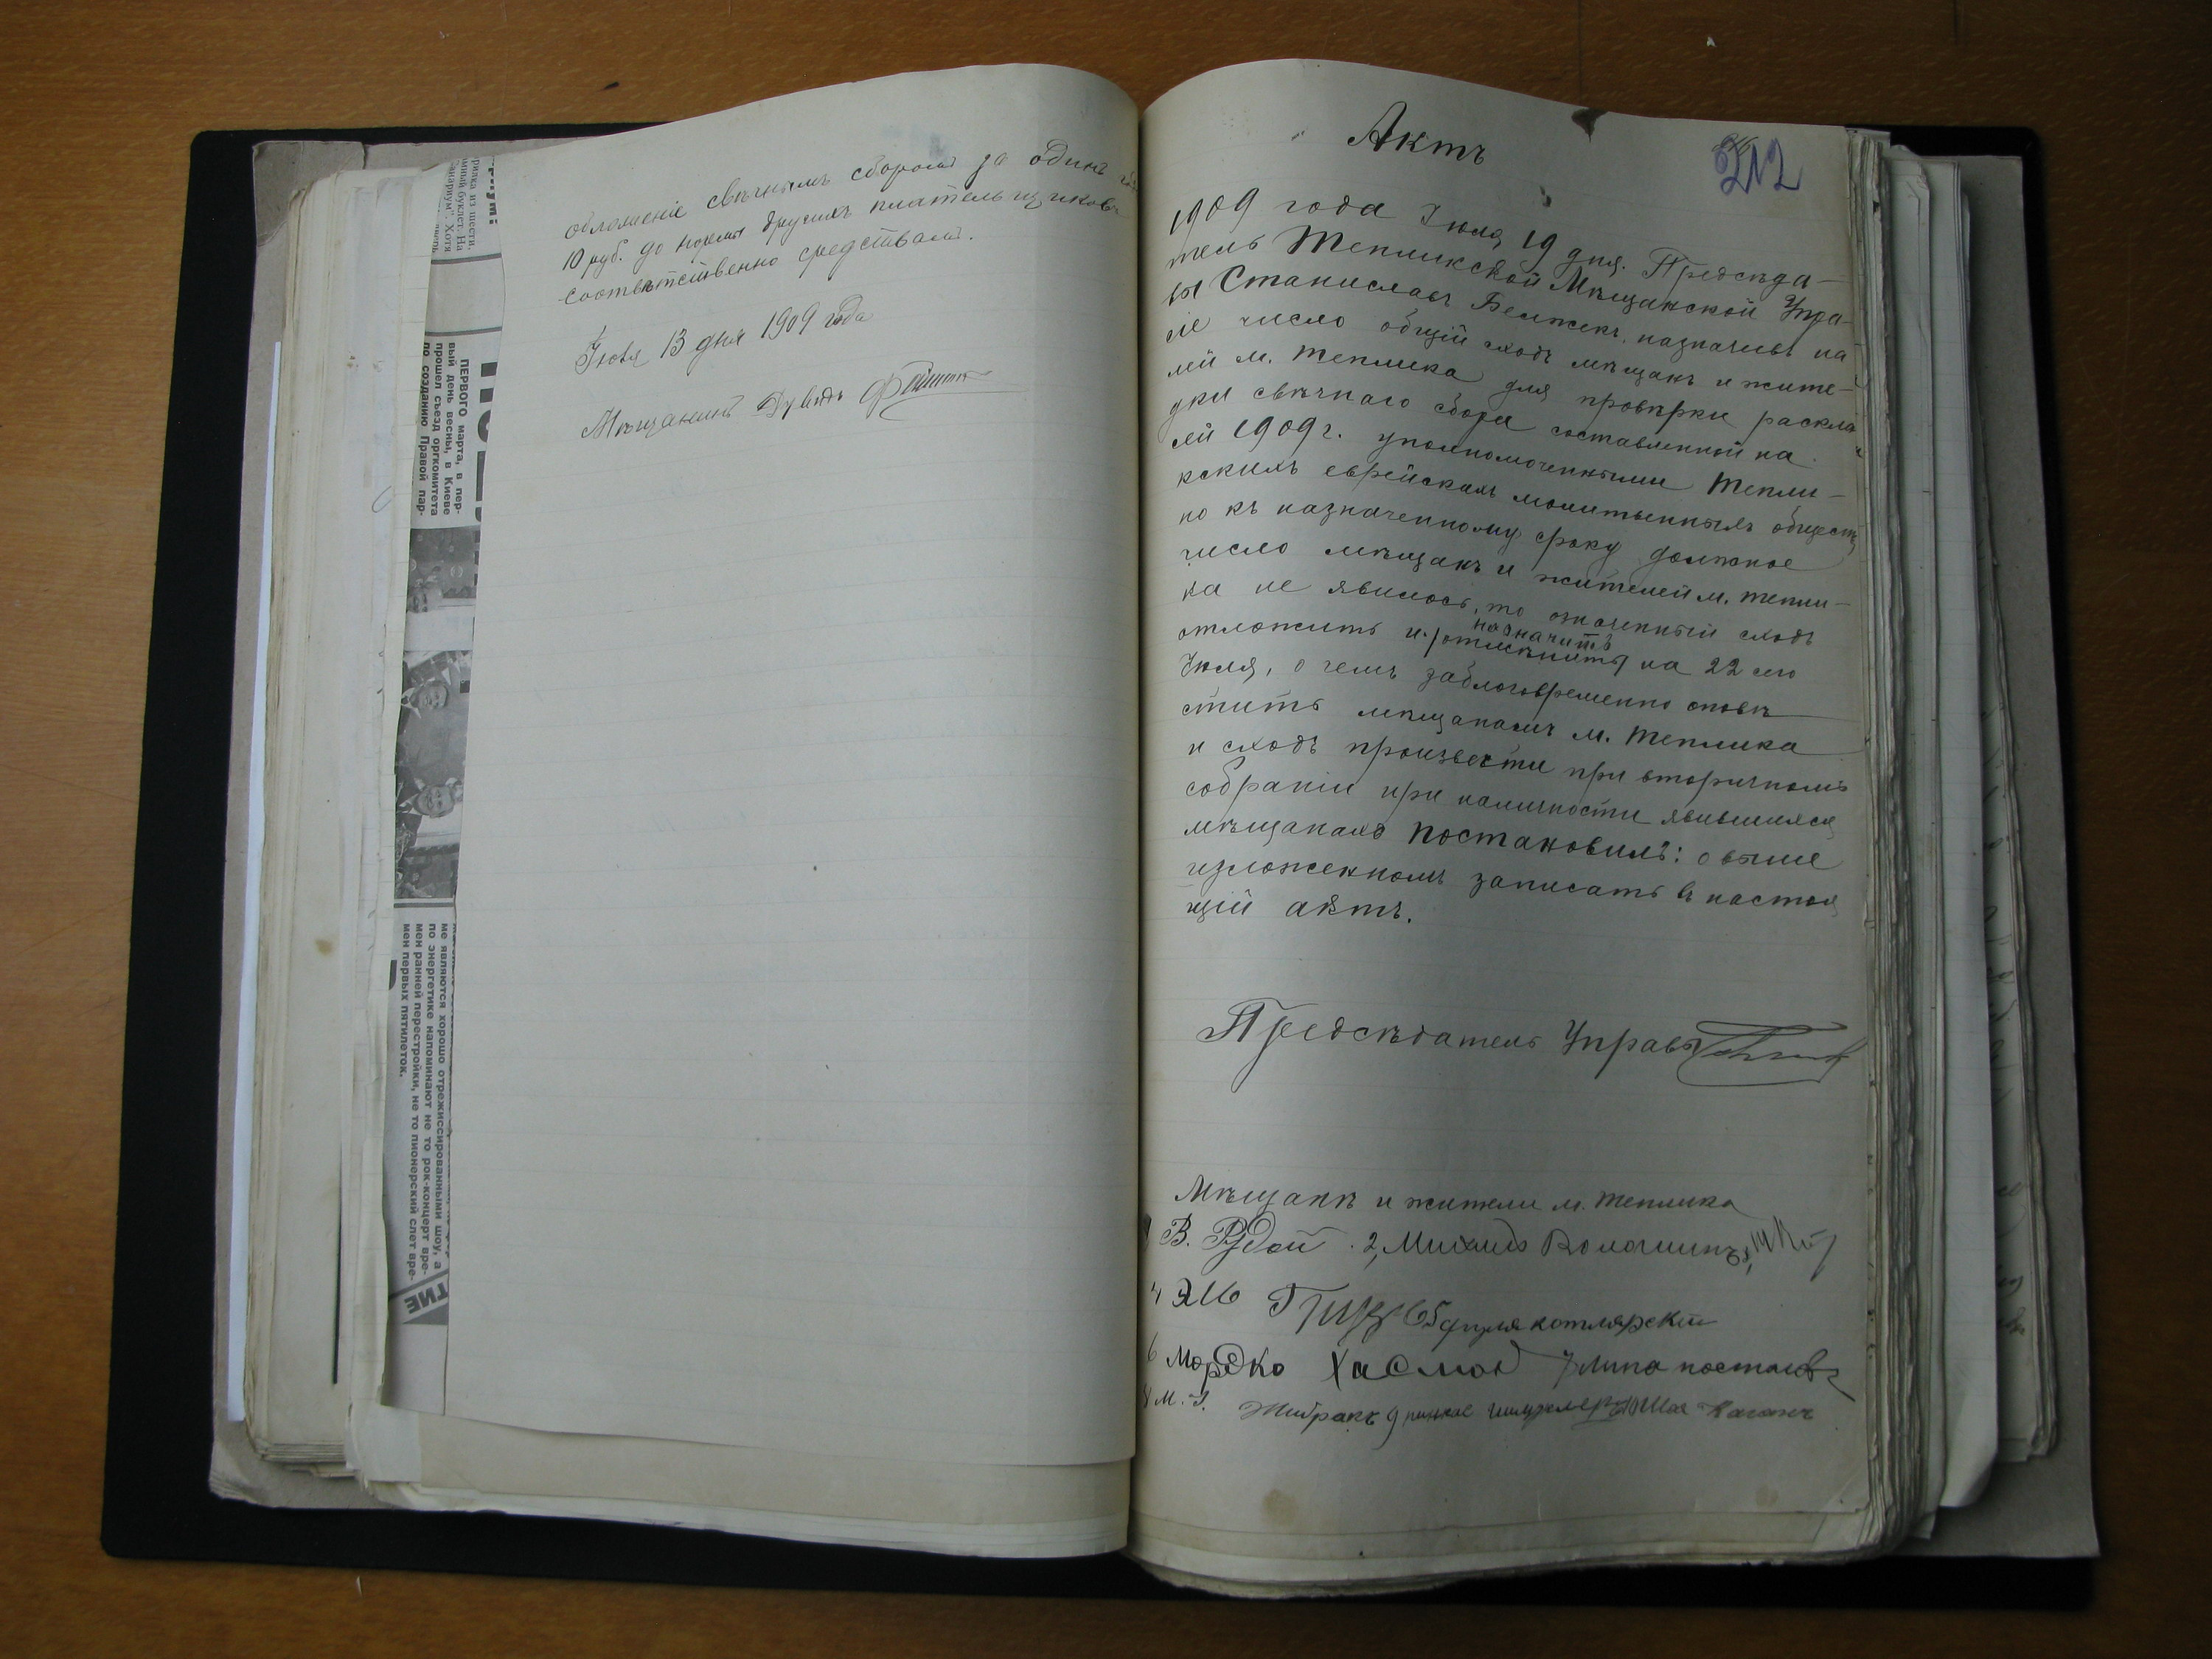 обложеніе свѣчнымъ сборомъ за одинъ
10 руб. до нормы другихъ плательщиковъ
соотвѣтственно средствамъ.
Іюля 13 дня 1909 года
Мѣщанинъ Дувидъ
ПЕРВОГО марта, в пер-
вый день весны, в Киеве
прошел съезд оргкомитета
по созданию Правой пар-
ме являются хорошо отрежиссированными шоу, а
по энергетике напоминают не то рок-концерт вре-
мен ранней перестройки, не то пионерский слет вре-
мен первых пятилеток.
ТИЕ
212
Актъ
1909 года Іюля 19 дня. Предсѣда-
тель Тепликской Мѣщанской Упра-
вы Станиславъ Белжекъ, назначивъ на
сіе число общій сходъ мѣщанъ и жите-
лей м. Теплика для провѣрки раскла
дки свѣчнаго сбора составленной на
сей 1909 г. уполномоченными Тепли-
кскимъ еврейскимъ молитвеннымъ обществ
но къ назначенному сроку должное
число мѣщанъ и жителей м. Тепли-
ка не явилось, то означенный сходъ
отложить и назначить на 22 сего
Іюля, о чемъ заблаговременно оповѣ
стить мѣщанамъ м. Теплика
и сходъ произвести при вторичномъ
собраніи при наличности явившихся
мѣщанахъ постановилъ: о выше
изложенномъ записать въ настоя
щій актъ.
Предсѣдатель Управы
Мѣщанѣ и жители м. Теплика
В. Рудой 2, Михаилъ Волошинъ
4 Эль
5 котлярскій
6 Мордко Хасмон 7 Липа
8 М. І. 9 10 Шая Каганъ